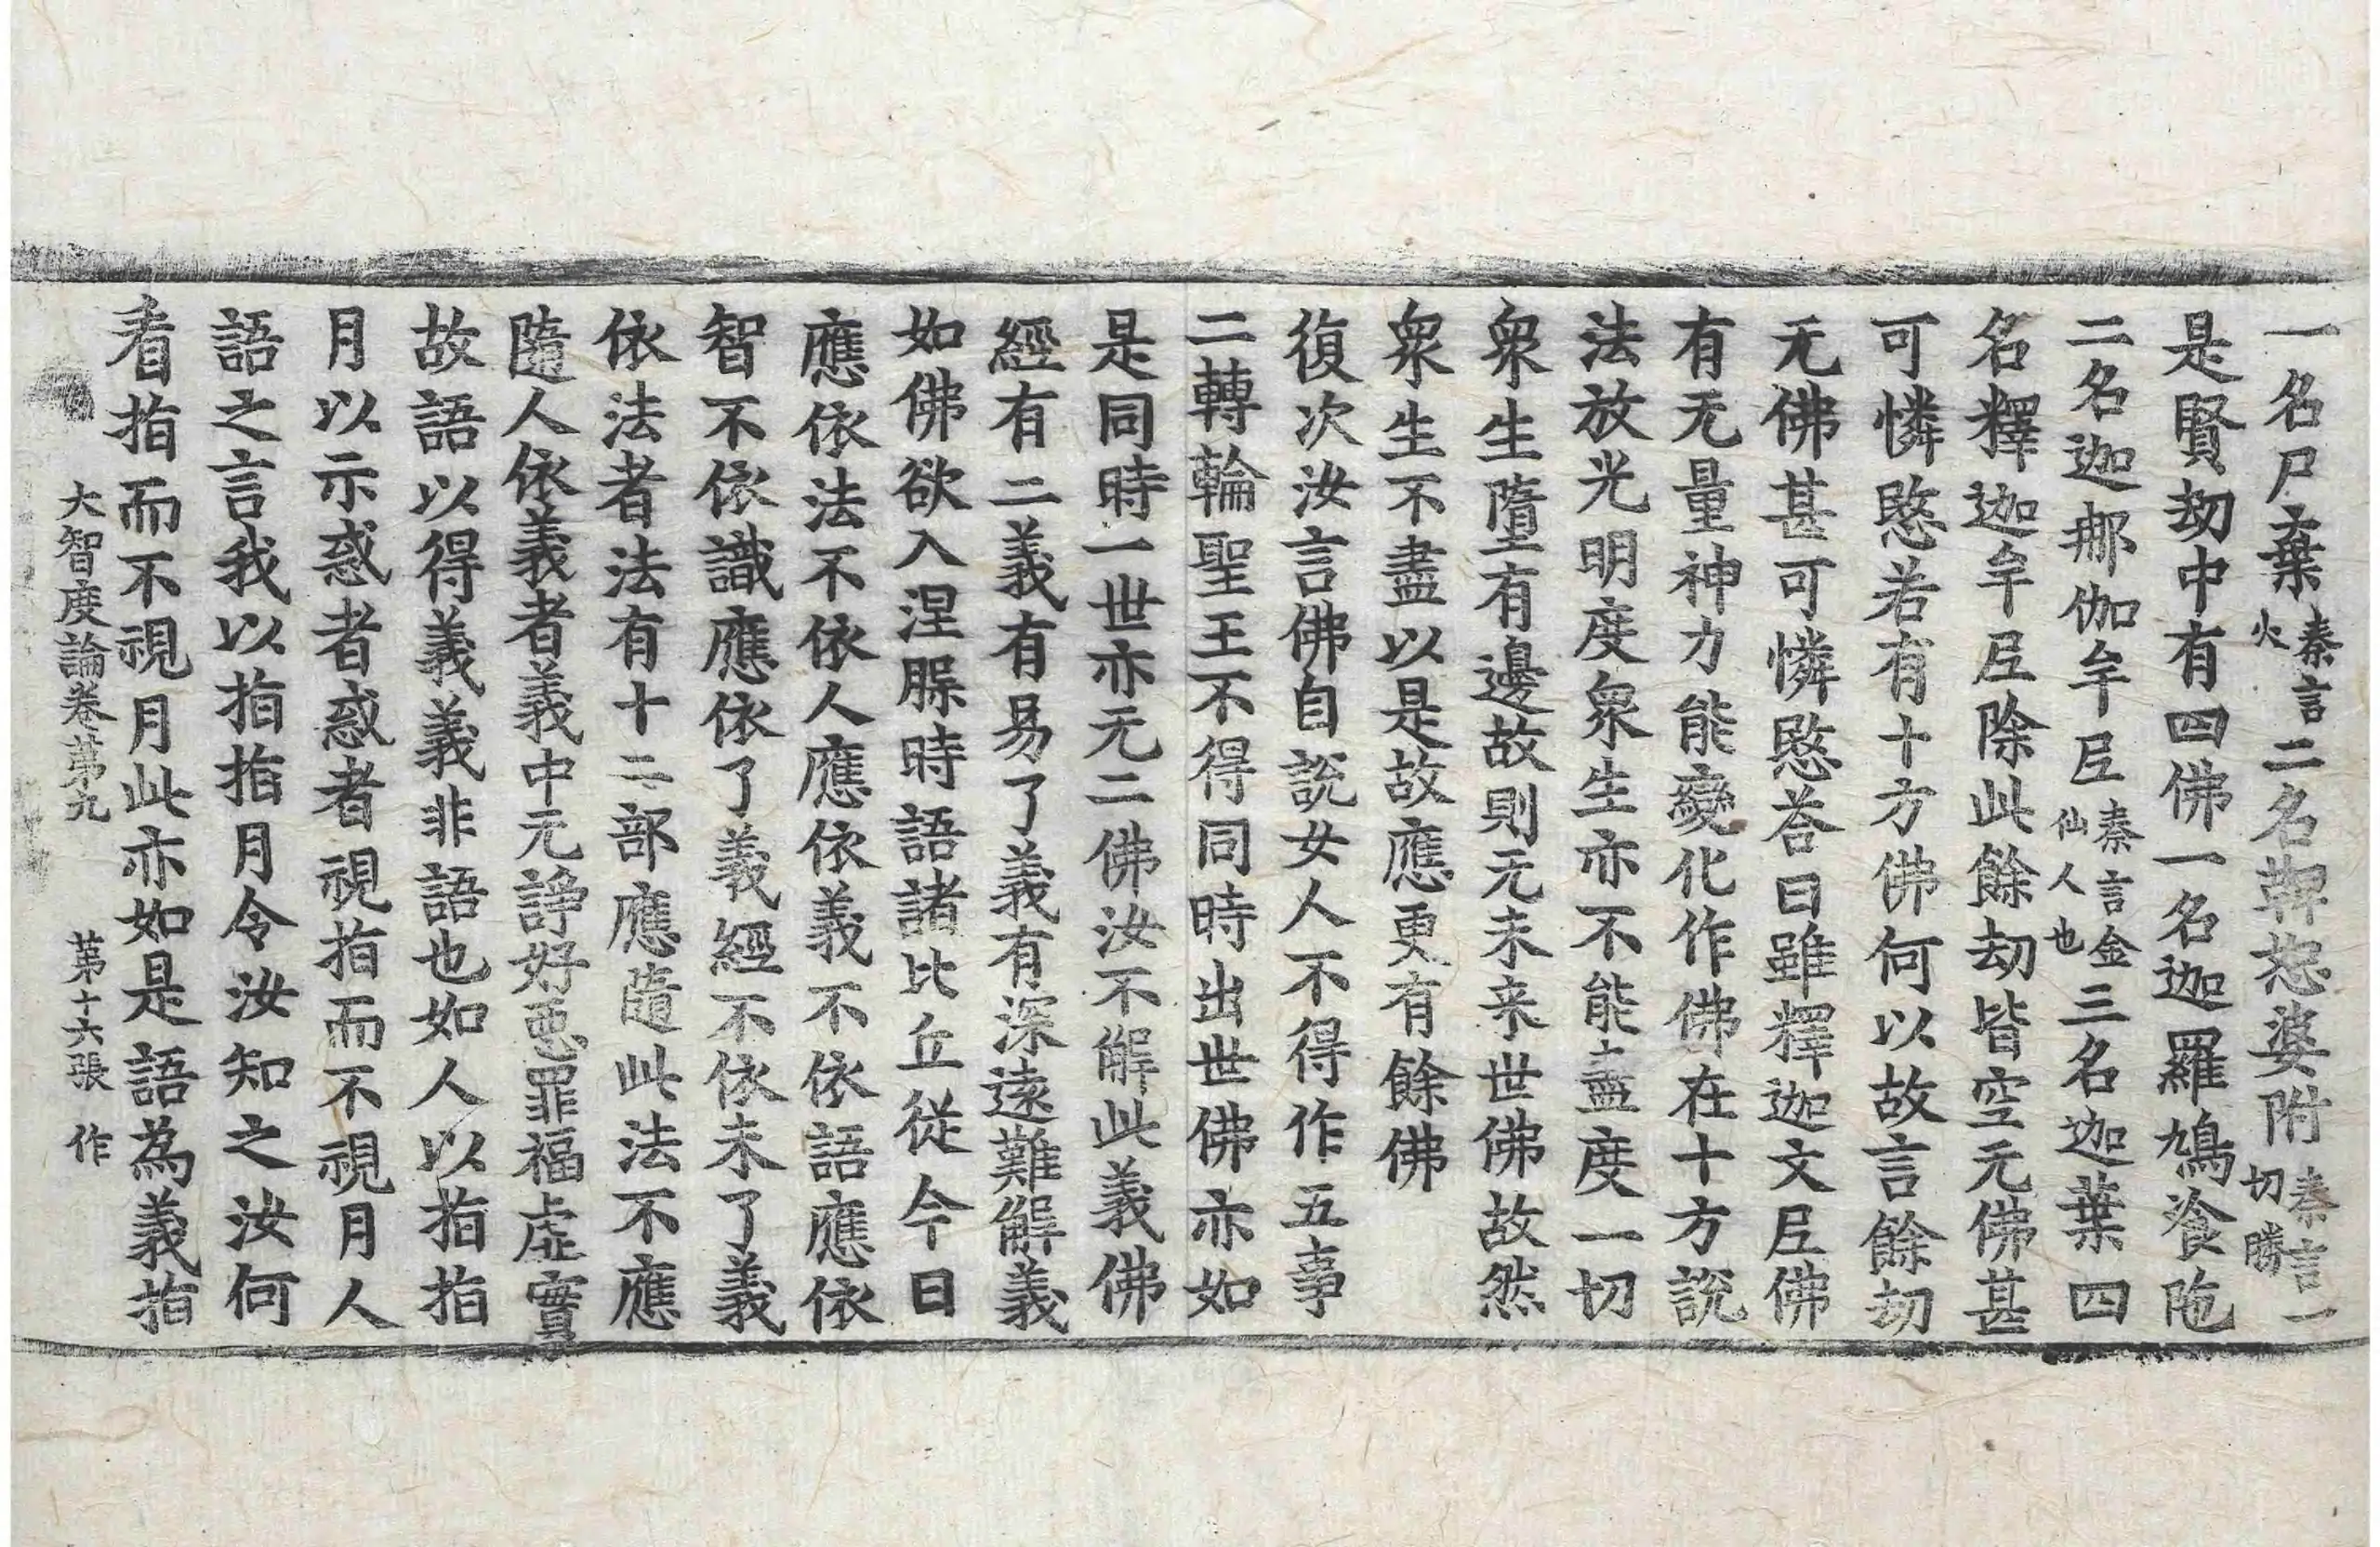 一名尸棄秦言火二名鞞恕婆附秦言一切勝
是賢劫中有四佛一名迦羅鳩飡陁
二名迦那伽牟尼秦言金仙人也三名迦葉四
名釋迦牟尼除此餘劫皆空无佛甚
可憐愍若有十方佛何以故言餘劫
无佛甚可憐愍荅曰雖釋迦文尼佛
有无量神力能變化作佛在十方說
法放光明度衆生亦不能盡度一切
衆生墮有邊故則无未来世佛故然
衆生不盡以是故應更有餘佛
復次汝言佛自說女人不得作五事
二轉輪聖王不得同時出世佛亦如
是同時一世亦无二佛汝不解此義佛
經有二義有易了義有深遠難解義
如佛欲入涅槃時語諸比丘從今日
應依法不依人應依義不依語應依
智不依識應依了義經不依未了義
依法者法有十二部應隨此法不應
隨人依義者義中无諍好惡罪福虛實
故語以得義義非語也如人以指指
月以示惑者惑者視指而不視月人
語之言我以指指月令汝知之汝何
看指而不視月此亦如是語為義指
大智度論卷第九 第十六張 作